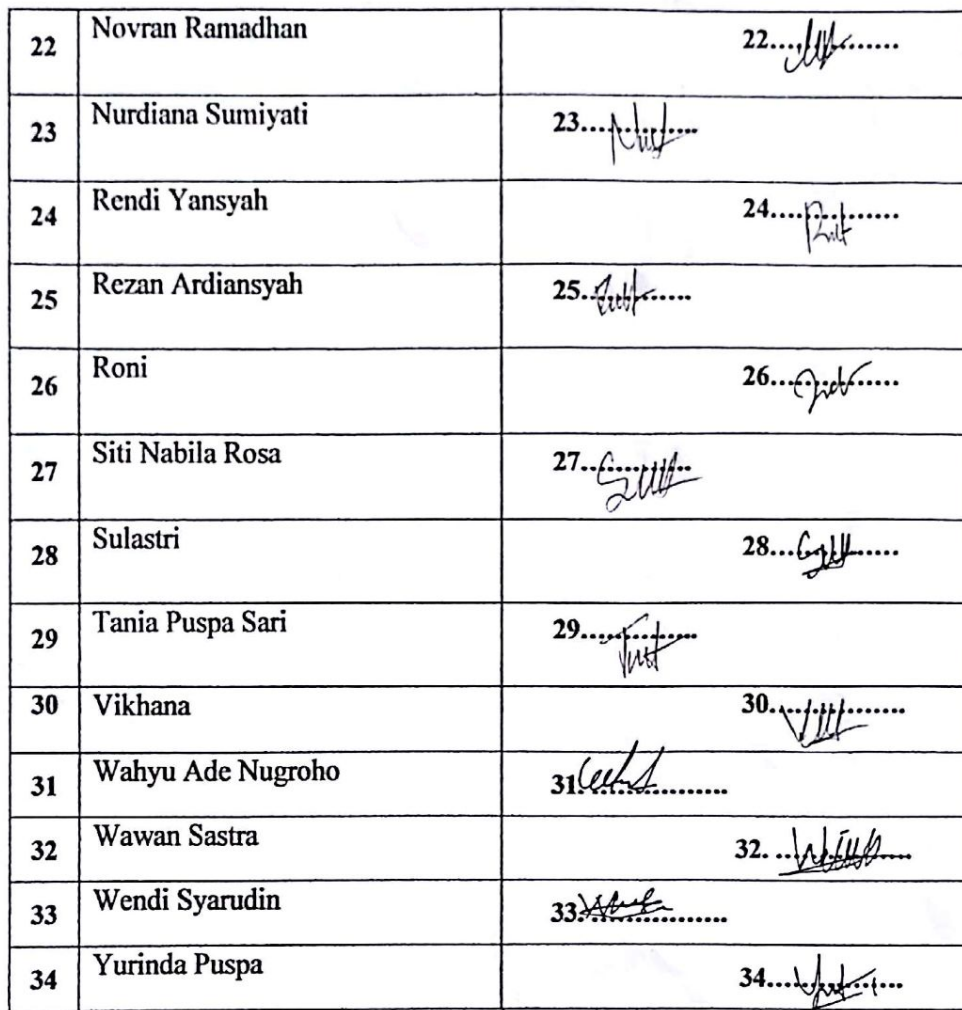 22 Novran Ramadhan 22...............
23 Nurdiana Sumiyati 23...............
24 Rendi Yansyah 24...............
25 Rezan Ardiansyah 25...............
26 Roni 26...............
27 Siti Nabila Rosa 27...............
28 Sulastri 28...............
29 Tania Puspa Sari 29...............
30 Vikhana 30...............
31 Wahyu Ade Nugroho 31...............
32 Wawan Sastra 32. ...............
33 Wendi Syarudin 33...............
34 Yurinda Puspa 34...............